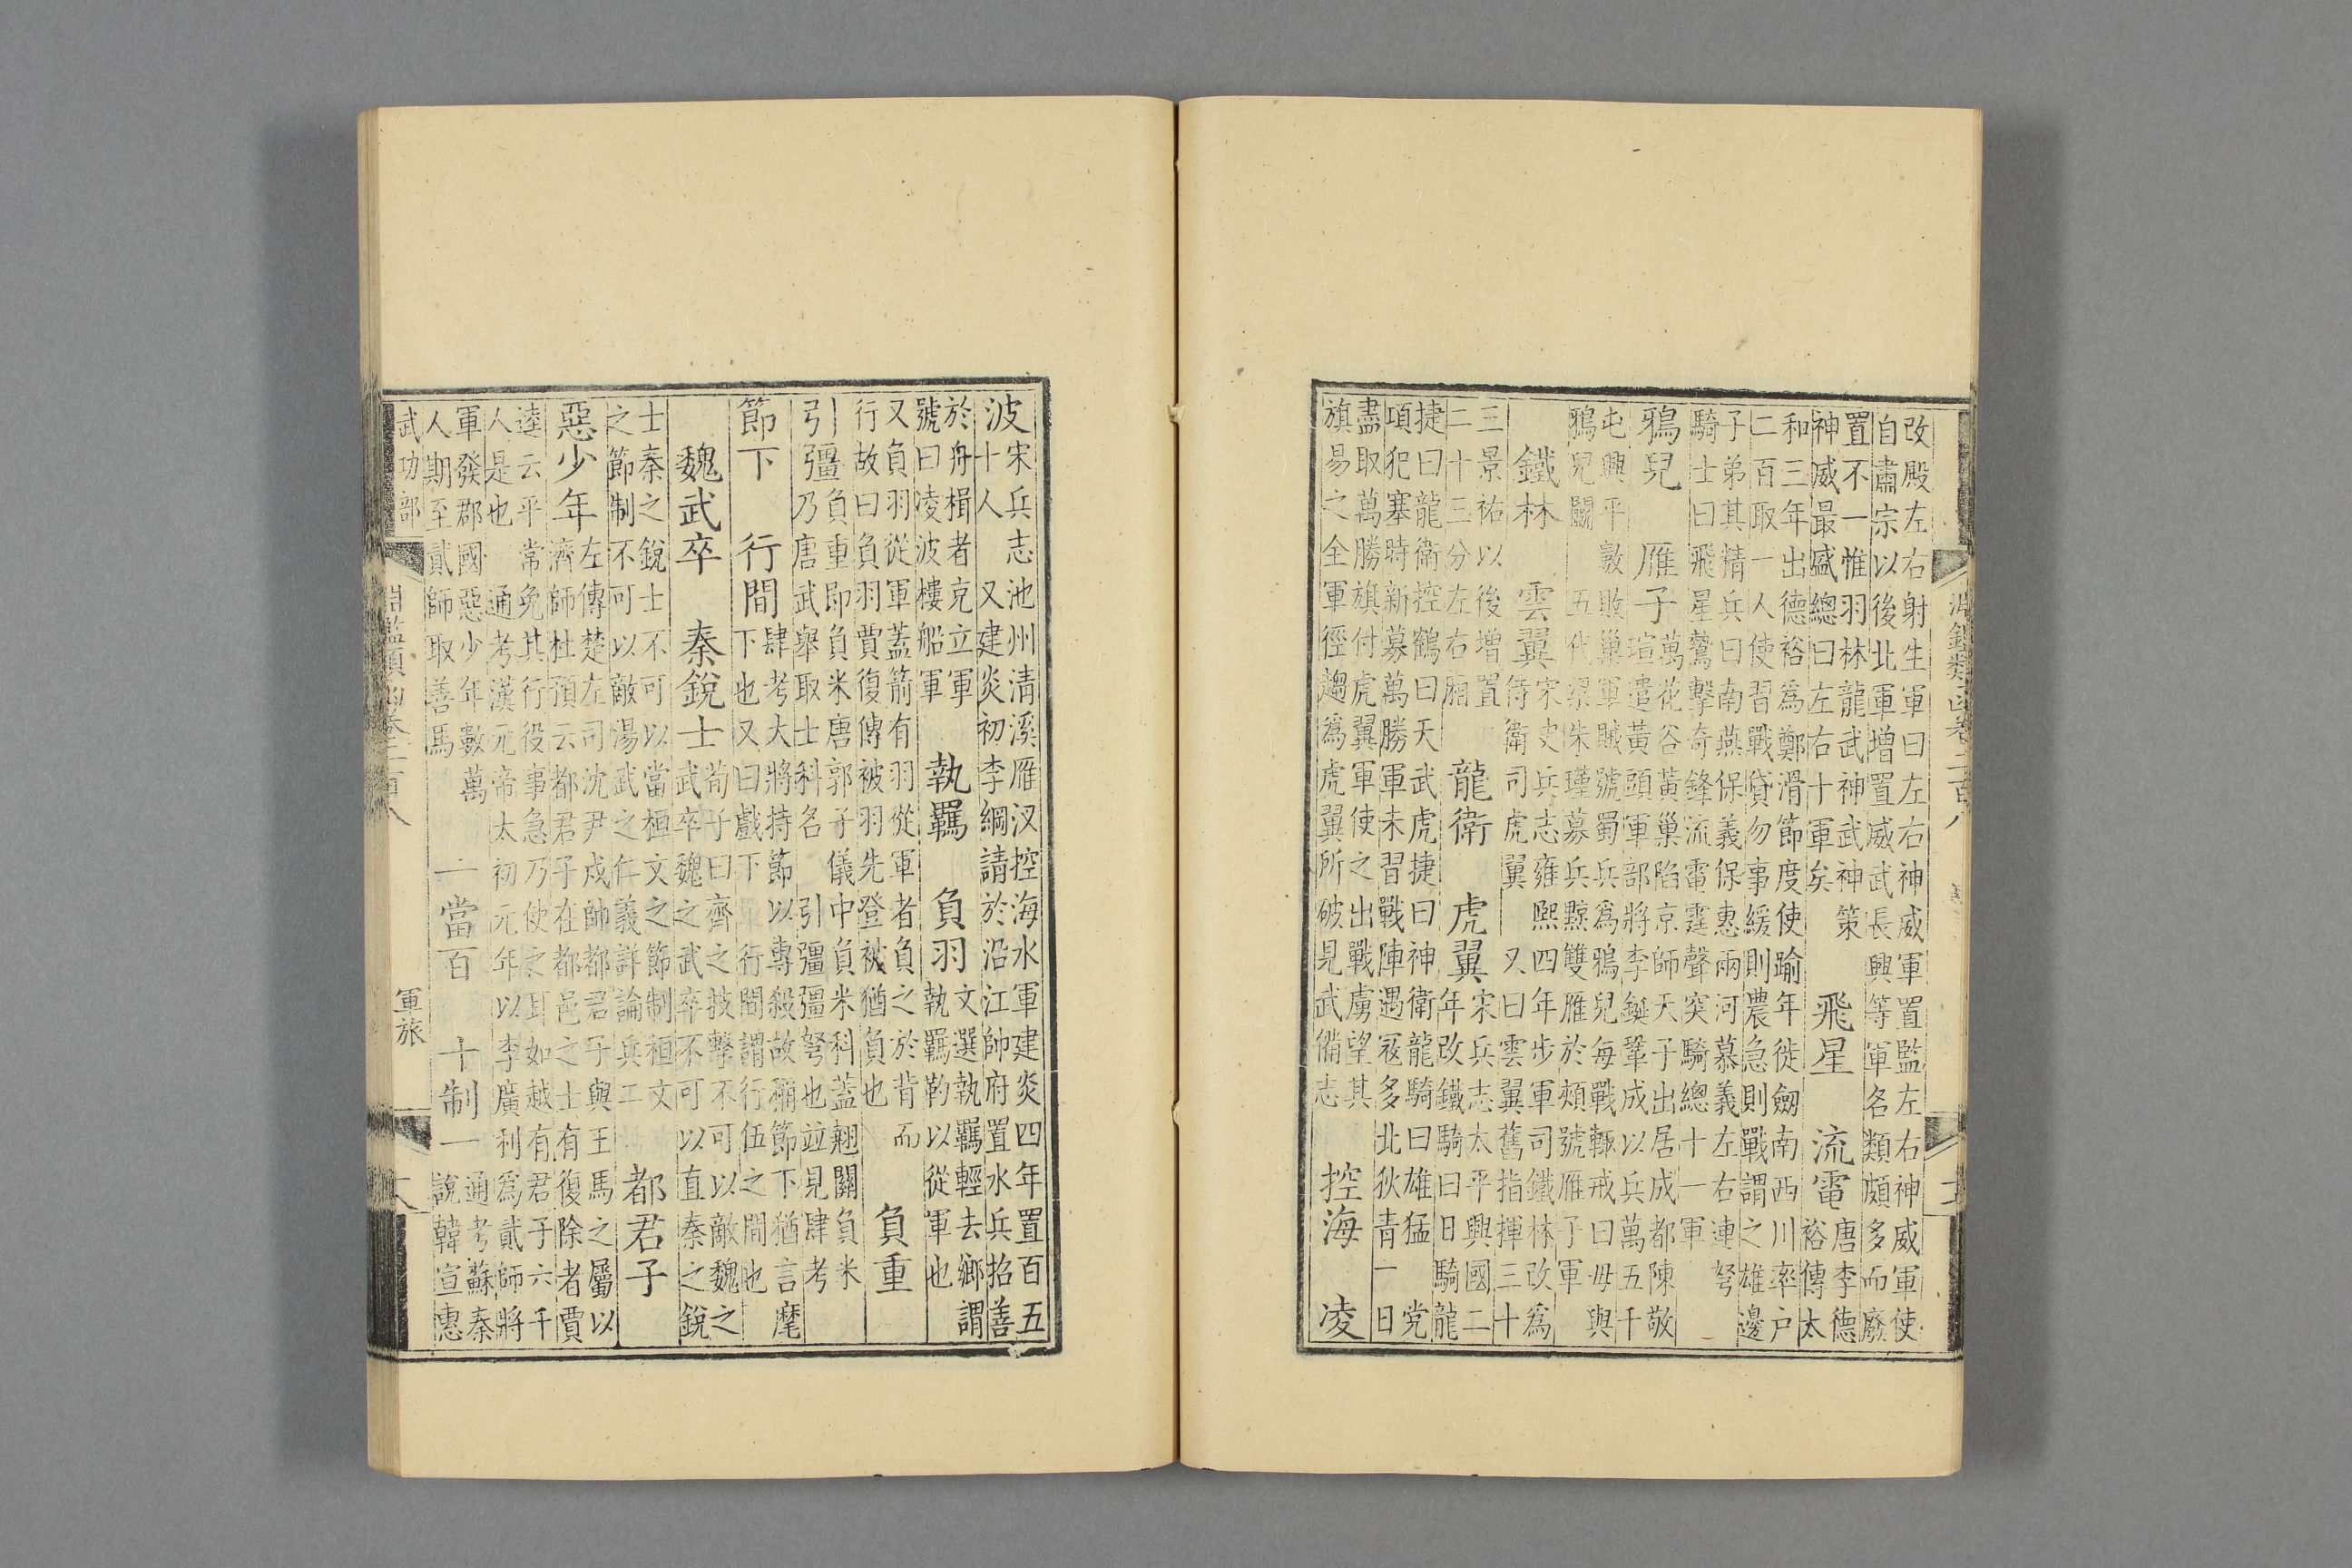 改殿左右射生軍曰左右神威軍置監左右神威軍使
自肅宗以後北軍增置威武長興等軍名類頗多而廢
置不一惟羽林龍武神武神策
神威最盛總曰左右十軍矣
飛星 流電
唐李德
裕傳太
和三年出德裕為鄭滑節度使踰年徙劒南西川率户
二百取一人使習戰貸勿事緩則農急則戰謂之雄邊
子弟其精兵曰南燕保義保惠兩河慕義左右連弩
騎士曰飛星鷙擊奇鋒流電霆聲突騎總十一軍
鴉兒 雁子
萬花谷黃巢陷京師天子出居成都陳敬
瑄遣黃頭軍部將李鋋鞏成以兵萬五千
屯興平數敗巢軍賊號蜀兵為鴉兒每戰輒戒曰毋與
鴉兒鬬 五代梁朱瑾募兵黥雙雁於頰號雁子軍
鐵林 雲翼
宋史兵志雍熙四年步軍司鐵林改為
侍衛司虎翼 又曰雲翼舊指揮三十
三景祐以後增置
二十三分左右廂
龍衛 虎翼
宋兵志太平興國二
年改鐵騎曰日騎龍
捷曰龍衛控鶴曰天武虎捷曰神衛龍騎曰雄猛 党
項犯塞時新募萬勝軍未習戰陣遇寇多北狄青一日
盡取萬勝旗付虎翼軍使之出戰虜望其
旗易之全軍徑趨為虎翼所破見武備志
控海 凌
淵鑑類函卷二百八
波
宋兵志池州清溪雁汊控海水軍建炎四年置百五
十人 又建炎初李綱請於沿江帥府置水兵招善
於舟楫者充立軍
號曰凌波樓船軍
執羈 負羽
文選執羈輕去鄉謂
執羈勒以從軍也
又負羽從軍蓋箭有羽從軍者負之於背而
行故曰負羽賈復傳被羽先登被猶負也
負重
引彊
負重即負米唐郭子儀中負米科蓋翹關負米
乃唐武舉取士科名 引彊彊弩也竝見肆考
節下 行間
肆考大將持節以專殺故稱節下猶言麾
下也又曰戲下 行間謂行行伍之間也
魏武卒 秦銳士
荀子曰齊之技擊不可以敵魏之
武卒魏之武卒不可以直秦之銳
士秦之銳士不可以當桓文之節制桓文
之節制不可以敵湯武之仁義詳論兵工
都君子
惡少年
左傳楚左司沈尹戍帥都君子與王馬之屬以
濟師杜預云都君子在都邑之士有復除者賈
逵云平常免其行役事急乃使之耳如越有君子六千
人是也 通考漢元帝太初元年以李廣利為貳師將
軍發郡國惡少年數萬
人期至貳師取善馬
一當百 十制一
通考蘇秦
說韓宣惠
武功部 軍旅